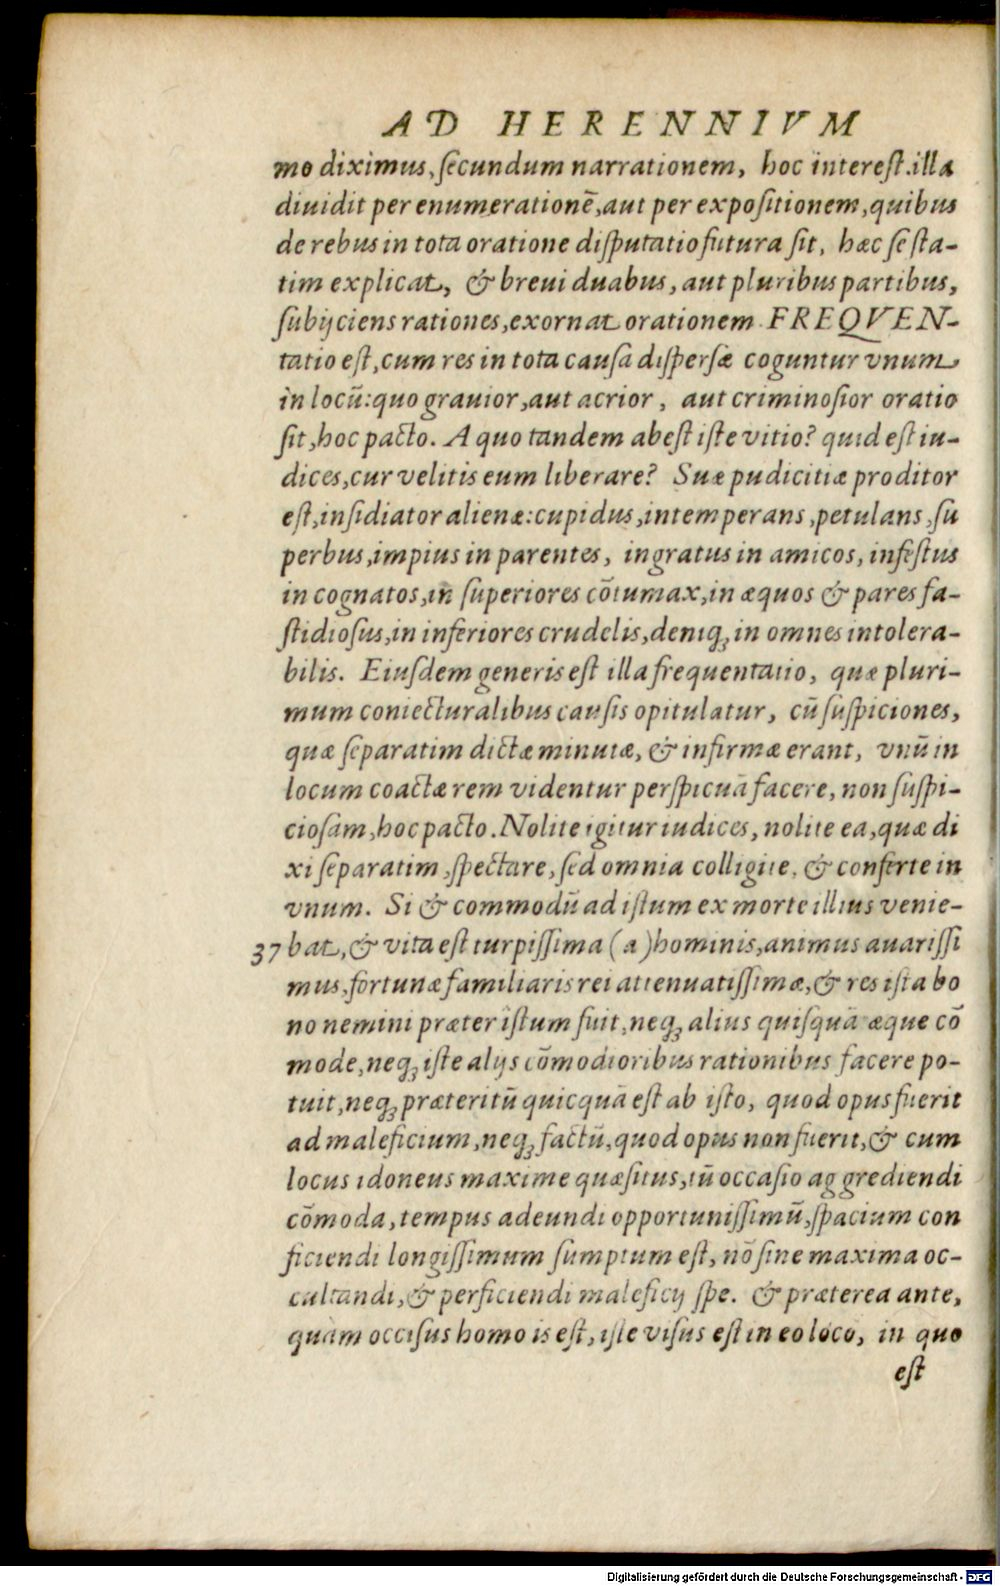 AD HERENNIVM
mo diximus, secundum narrationem, hoc interest. illa
diuidit per enumerationẽ, aut per expositionem, quibus
de rebus in tota oratione disputatio futura sit, hæc se sta-
tim explicat, & breui duabus, aut pluribus partibus,
subijciens rationes, exornat orationem. FREQVEN-
tatio est, cum res in tota causa dispersæ coguntur vnum
in locũ: quo grauior, aut acrior, aut criminosior oratio
sit, hoc pacto. A quo tandem abest iste vitio? quid est iu-
dices, cur velitis eum liberare? Suæ pudicitiæ proditor
est, insidiator alienæ: cupidus, intemperans, petulans, su
perbus, impius in parentes, ingratus in amicos, infestus
in cognatos, in superiores cõtumax, in æquos & pares fa-
stidiosus, in inferiores crudelis, deniqꝫ in omnes intolera-
bilis. Eiusdem generis est illa frequentatio, quæ pluri-
mum coniecturalibus causis opitulatur, cũ suspiciones,
quæ separatim dictæ minutæ, & infirmæ erant, vnũ in
locum coactæ rem videntur perspicuã facere, non suspi-
ciosam, hoc pacto. Nolite igitur iudices, nolite ea, quæ di
xi separatim, spectare, sed omnia colligite, & conferte in
vnum. Si & commodũ ad istum ex morte illius venie-
37 bat, & vita est turpissima (a) hominis, animus auarissi
mus, fortunæ familiaris rei attenuatissimæ, & res ista bo
no nemini præter istum fuit, neqꝫ alius quisquã æque cõ
mode, neqꝫ iste alijs cõmodioribus rationibus facere po-
tuit, neqꝫ præteritũ quicquã est ab isto, quod opus fuerit
ad maleficium, neqꝫ factũ, quod opus non fuerit, & cum
locus idoneus maxime quæsitus, tũ occasio aggrediendi
cõmoda, tempus adeundi opportunissimũ, spacium con
ficiendi longissimum sumptum est, nõ sine maxima oc-
cultandi, & perficiendi maleficij spe. & præterea ante,
quàm occisus homo is est, iste visus est in eo loco, in quo
est
Digitalisierung gefördert durch die Deutsche Forschungsgemeinschaft - DFG